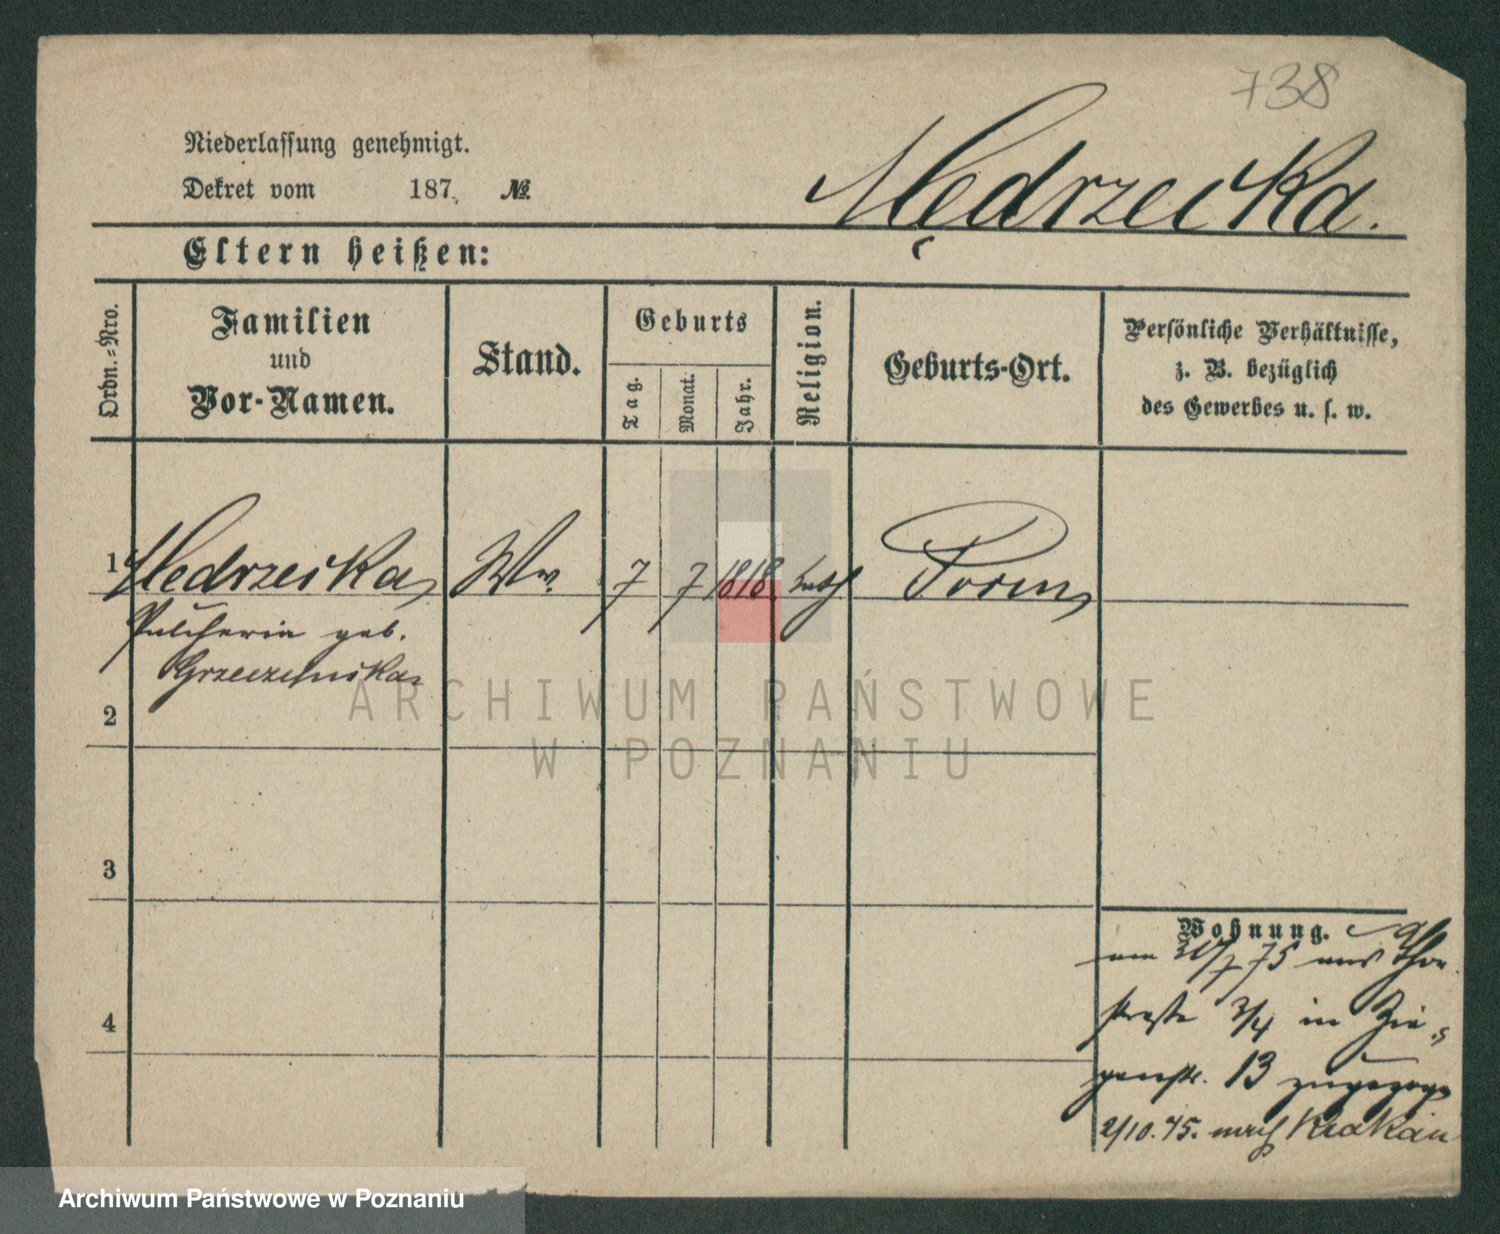 738
Niederlassung genehmigt.
Dekret vom 187. №.
Mędrzecka.
Eltern heißen:
Ordn.=Nro.
Familien
und
Vor-Namen.
Stand.
Geburts
Tag.
Monat.
Jahr.
Religion.
Geburts-Ort.
Persönliche Verhältnisse,
z. B. bezüglich
des Gewerbes u. s. w.
1 Medrzecka Ww. 7 7 1818 kath
Pulcheria geb.
2
3
4
Wohnung.
am /7 75 aus Thor
straße 3/4 in Zie
genstr. 13 zugezogen
2/10.75. nach Krakau
ARCHIWUM PAŃSTWOWE
W POZNANIU
Archiwum Państwowe w Poznaniu